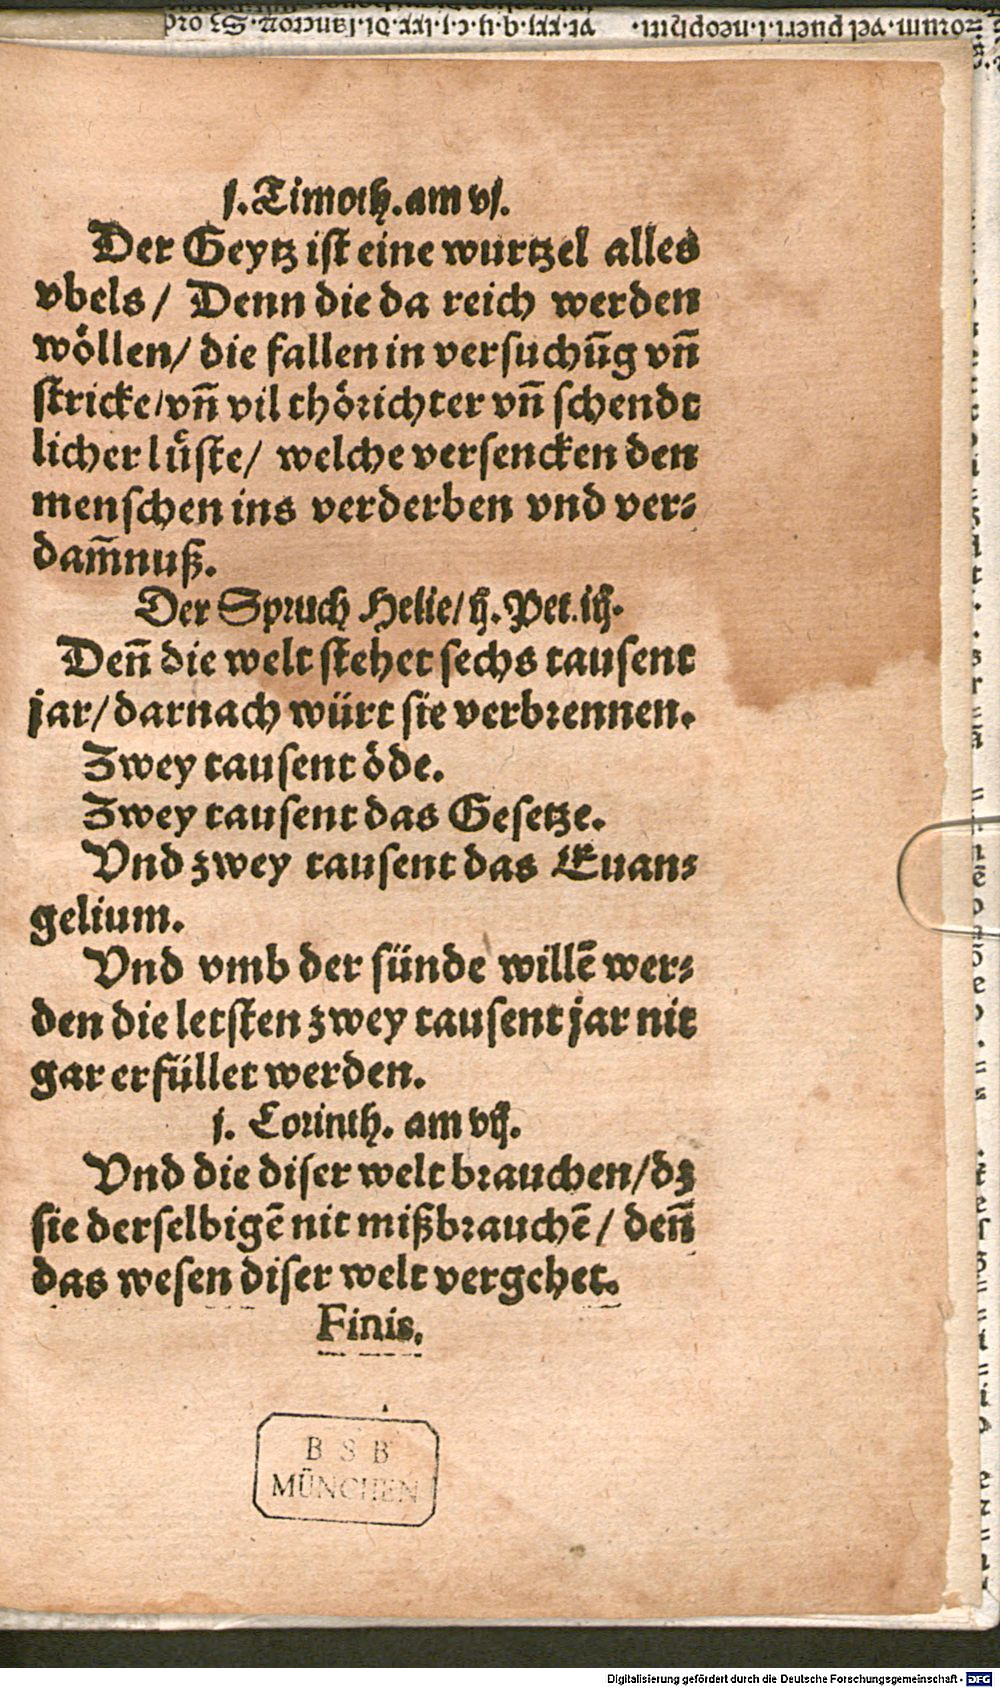 j. Timoth. am vj.
Der Geytz ist eine wurtzel alles
vbels / Denn die da reich werden
wöllen / die fallen in versuchūg vn̄
stricke / vn̄ vil thörichter vn̄ schendt
licher lüste / welche versencken den
menschen ins verderben vnd ver⸗
dam̄nuß.
Der Spruch Helie / ij. Pet. iij.
Den̄ die welt stehet sechs tausent
jar / darnach würt sie verbrennen.
Zwey tausent öde.
Zwey tausent das Gesetze.
Vnd zwey tausent das Euan⸗
gelium.
Vnd vmb der sünde willē wer⸗
den die letsten zwey tausent jar nit
gar erfüllet werden.
j. Corinth. am vij.
Vnd die diser welt brauchen / dz
sie derselbigē nit mißbrauchē / den̄
das wesen diser welt vergehet.
Finis.
B S B
MÜNCHEN
Digitalisierung gefördert durch die Deutsche Forschungsgemeinschaft - DFG